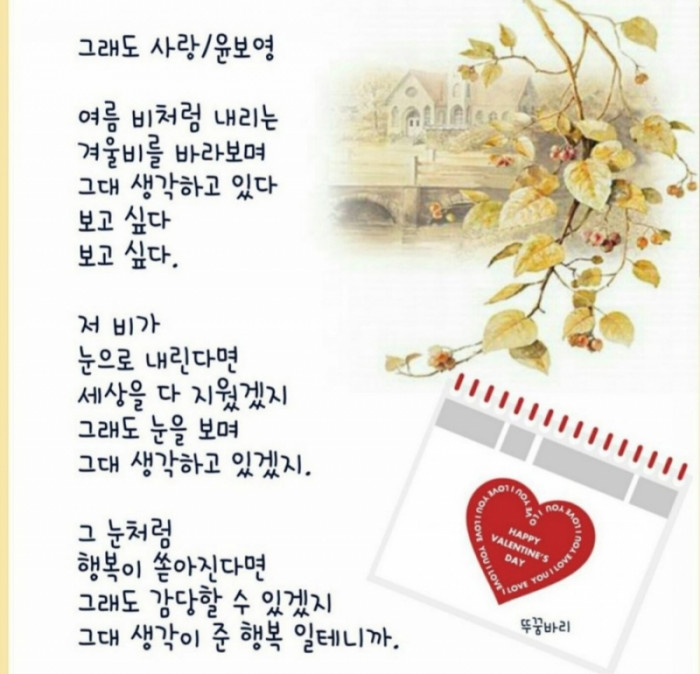 그래도 사랑/윤보영
여름 비처럼 내리는
겨울비를 바라보며
그대 생각하고 있다
보고 싶다
보고 싶다.
저 비가
눈으로 내린다면
세상을 다 지웠겠지
그래도 눈을 보며
그대 생각하고 있겠지.
그 눈처럼
행복이 쏟아진다면
그래도 감당할 수 있겠지
그대 생각이 준 행복 일테니까.
HAPPY
VALENTINE'S
DAY
I LOVE YOU I LOVE YOU I LOVE YOU I LOVE YOU
뚜꿍바리